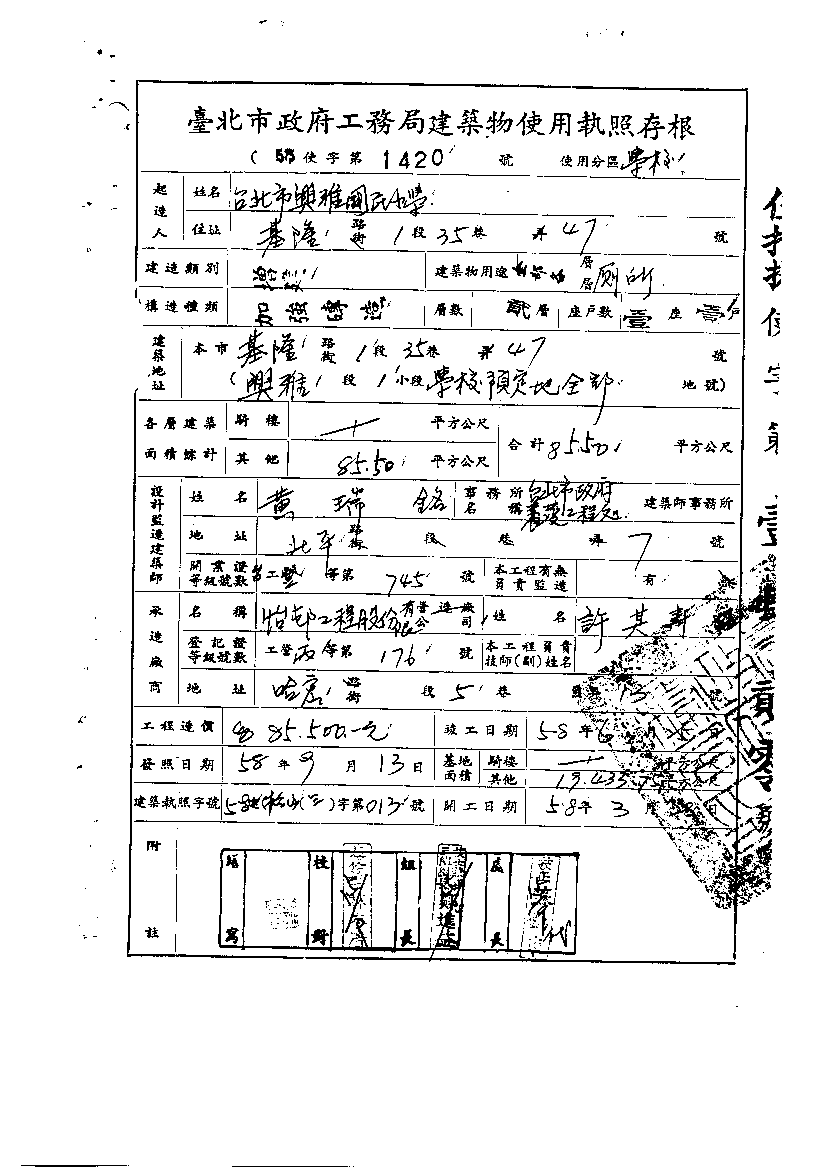 臺北市政府工務局建築物使用執照存根
( 使字第 1420 號 使用分區 學校
起造人 姓名 台北市興雅國民小學
住址 基隆 路街 1 段 35 巷 弄 47 號
建造類別 增 建築物用途 層層 廁所
構造種類 加強磚造 層數 貳層 座戶數 壹座壹戶
建築地址 本市 基隆 路街 1 段 35 巷 弄 47 號
(興雅 段 1 小段 學校預定地全部 地號)
各層建築面積總計 騎樓 平方公尺 合計 85.50 平方公尺
其他 85.50 平方公尺
設計監造建築師 姓名 黃瑞銘 事務所名稱 台北市政府 工程處 建築師事務所
地址 北平 路街 段 巷 弄 7 號
開業證等級號數 等第 745 號 本工程有無負責監造 有 無
承造廠商 名稱 怡 工程股份有 公司 姓名 許其
登記證等級號數 工營 等第 176 號 本工程負責技師(副)姓名
地址 哈密 街 段 5 巷 13 號
工程造價 85.500.元 竣工日期 58年6月 日
發照日期 58年9月13日 基地面積 騎樓 平方公尺
其他 平方公尺
建築執照字號 58 松山(三)字第013號 開工日期 58年3月 日
附註 繕寫 校對 組長 長
使字第 壹 零 號